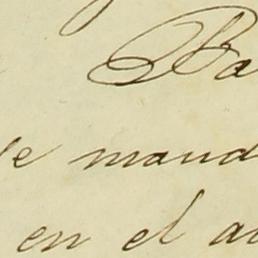 Ba
e mand
en el a